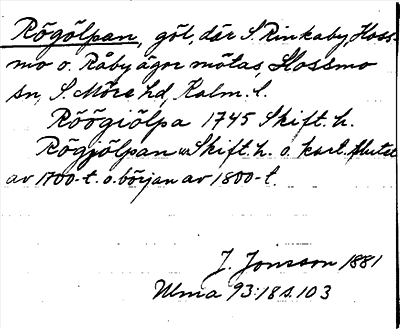 Rögölpan, göl, där S Rinkaby, Hoss-
mo o. Råby ägor mötas, Hossmo
sn, S. Möre hd, Kalm. l.
Röögiölpa 1745 Skift. h.
Rögjölpan Skift. h. o. kart. slutet
av 1700-t. o. början av 1800-t.
J. Jonsson 1881
Ulma 93:18 s. 103